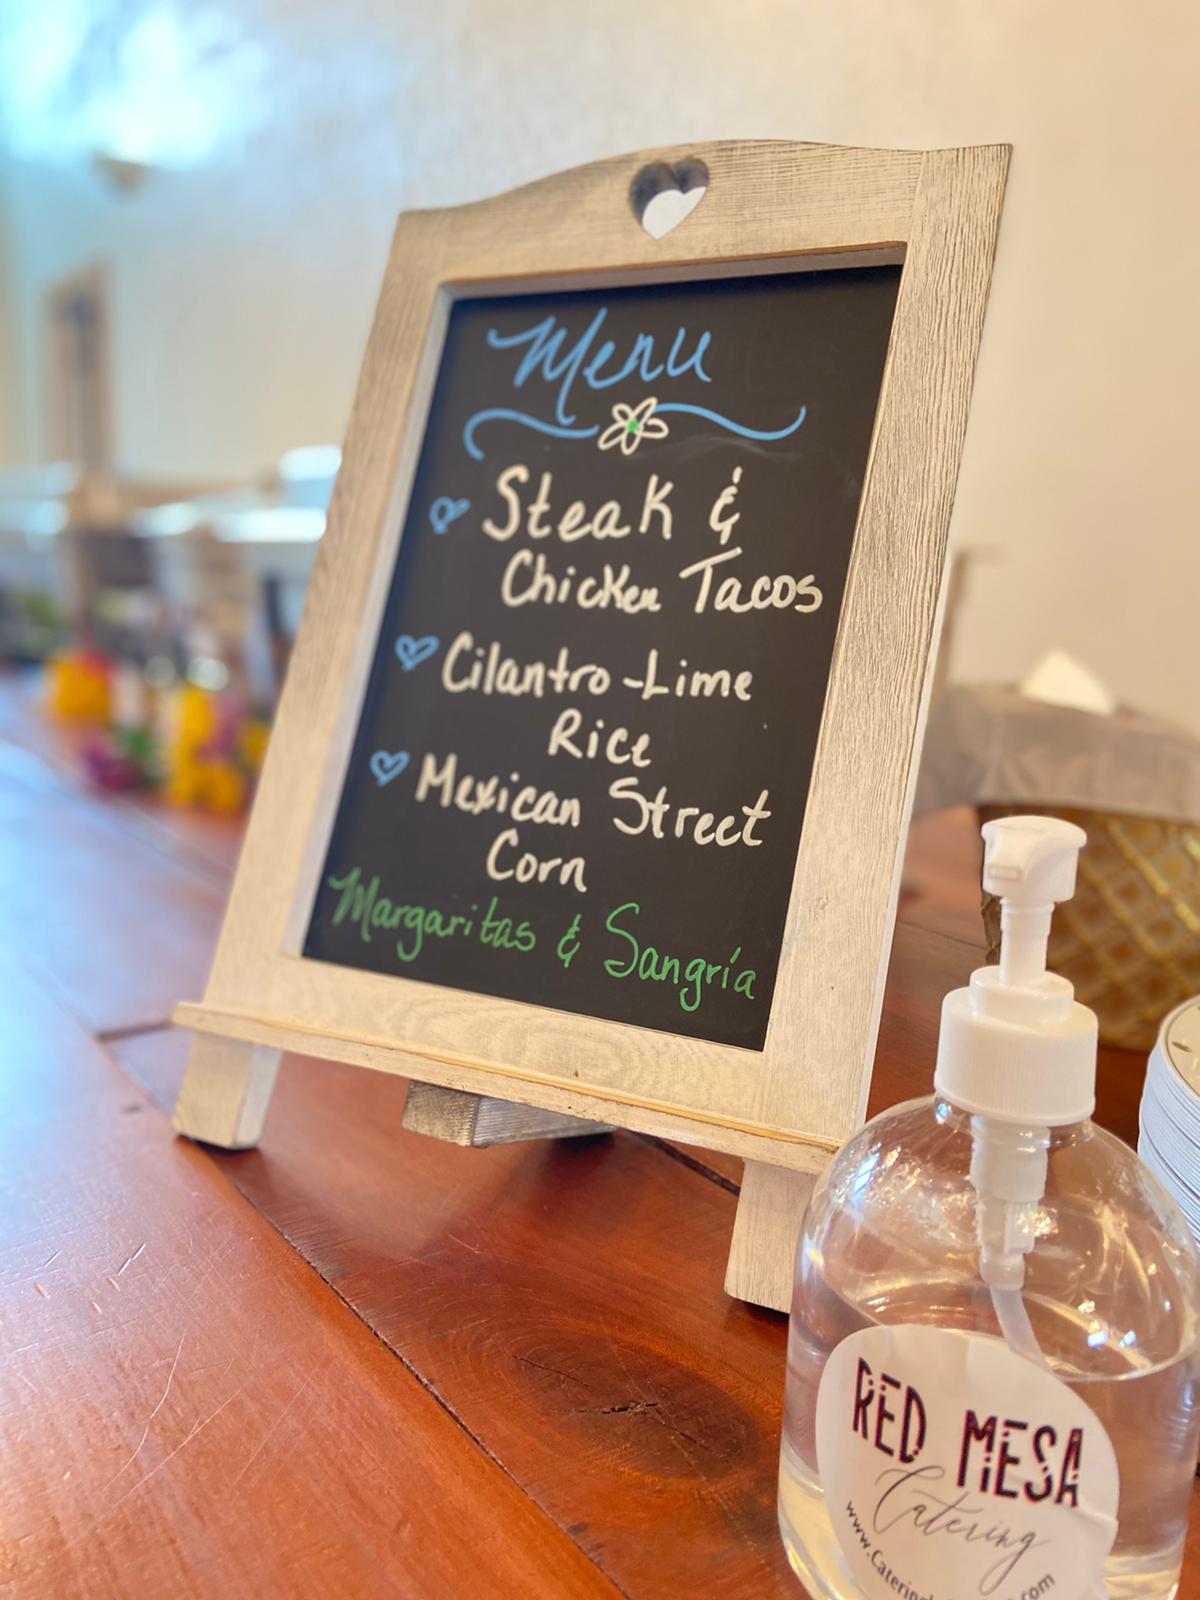 Menu
Steak &
Chicken Tacos
Cilantro-Lime
Rice
Mexican Street
Corn
Margaritas & Sangría
RED MESA
Catering